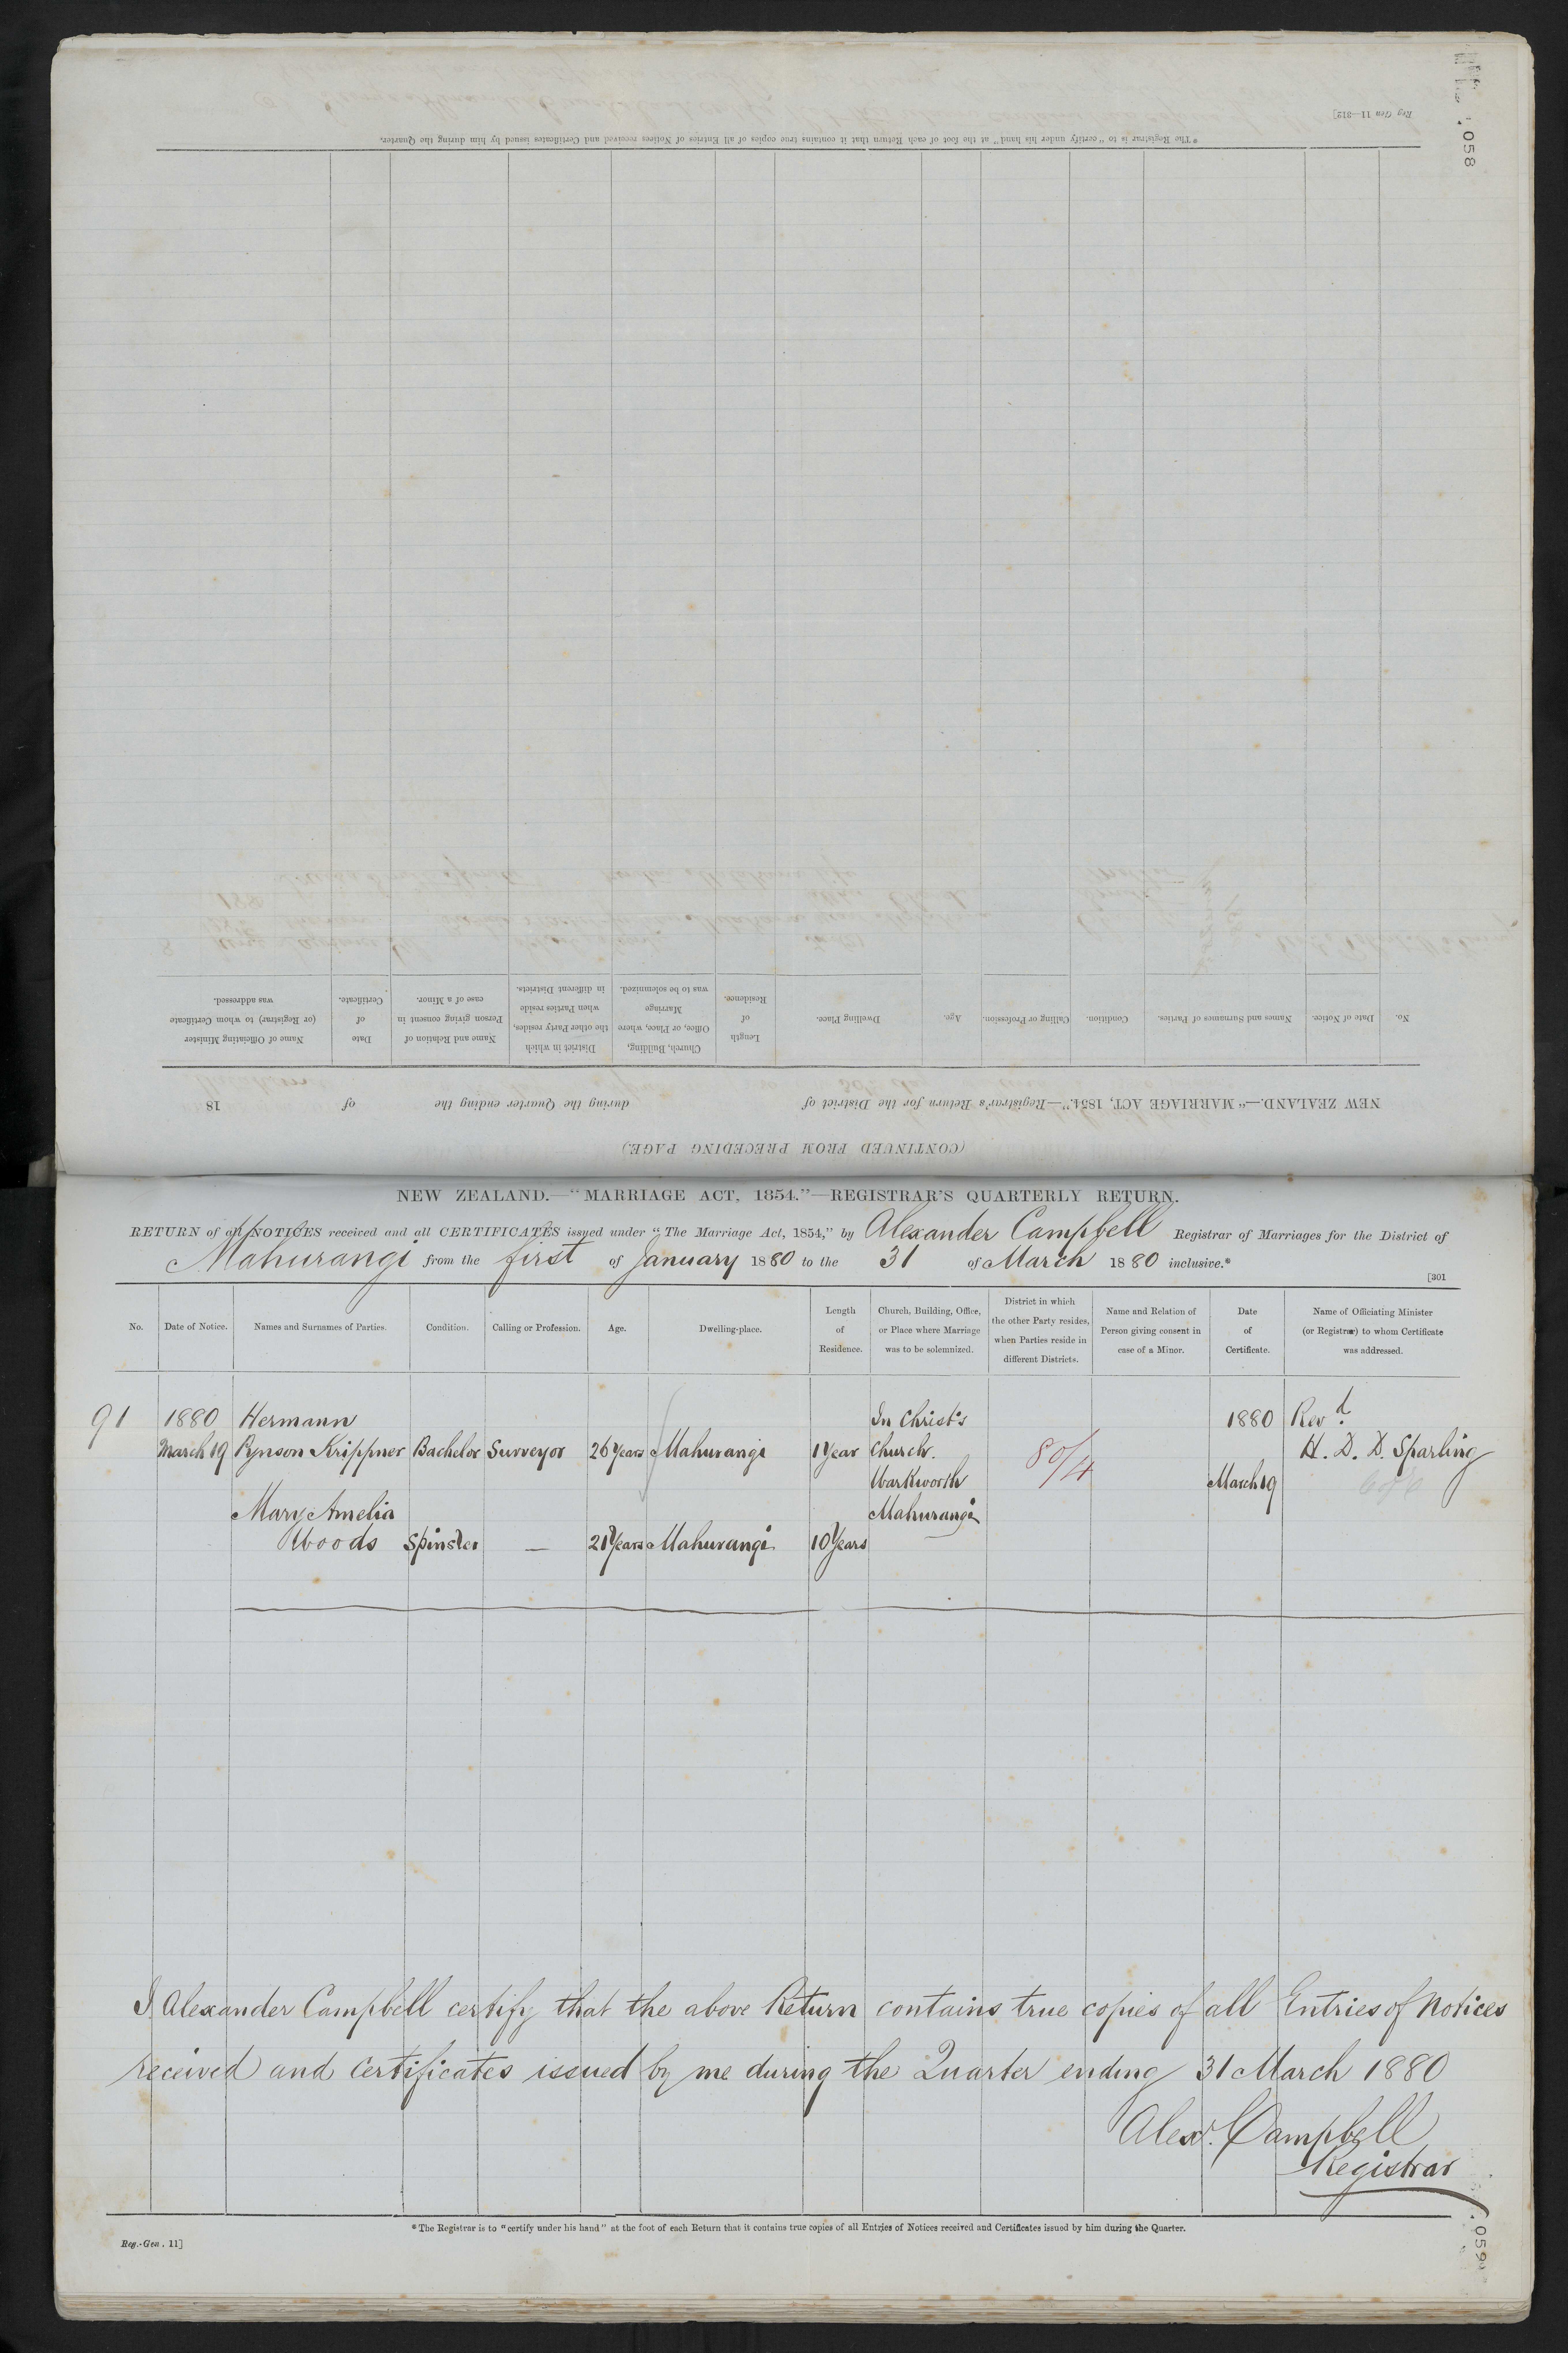 058
Reg Gen 11—312]
*The Registrar is to "certify under his hand" at the foot of each Return that it contains true copies of all Entries of Notices received and Certificates issued by him during the Quarter.
No. Date of Notice. Names and Surnames of Parties. Condition. Calling or Profession. Age. Dwelling Place. Length of Residence. Church, Building, Office, or Place, where Marriage was to be solemnized. District in which the other Party resides, when Parties reside in different Districts. Name and Relation of Person giving consent in case of a Minor. Date of Certificate. Name of Officiating Minister (or Registrar) to whom Certificate was addressed.
NEW ZEALAND.—"MARRIAGE ACT, 1854."—Registrar's Return for the District of during the Quarter ending the of 18
(CONTINUED FROM PRECEDING PAGE)
NEW ZEALAND.—"MARRIAGE ACT, 1854."—REGISTRAR'S QUARTERLY RETURN.
RETURN of all NOTICES received and all CERTIFICATES issued under "The Marriage Act, 1854," by Alexander Campbell Registrar of Marriages for the District of
Mahurangi from the first of January 1880 to the 31 of March 1880 inclusive.*
[301
No. Date of Notice. Names and Surnames of Parties. Condition. Calling or Profession. Age. Dwelling-place. Length of Residence. Church, Building, Office, or Place where Marriage was to be solemnized. District in which the other Party resides, when Parties reside in different Districts. Name and Relation of Person giving consent in case of a Minor. Date of Certificate. Name of Officiating Minister (or Registrar) to whom Certificate was addressed.
91 1880 Hermann In Christ's 1880 Revd.
March 19 Pynson Krippner Bachelor Surveyor 26 Years Mahurangi 1 Year Church. 80/4 H. D. D. Sparling
Warkworth March 19
Mary Amelia Mahurangi
Woods Spinster — 21 Years Mahurangi 10 Years
I Alexander Campbell certify that the above Return contains true copies of all Entries of Notices
received and Certificates issued by me during the Quarter ending 31 March 1880
Alexr. Campbell
Registrar
*The Registrar is to "certify under his hand" at the foot of each Return that it contains true copies of all Entries of Notices received and Certificates issued by him during the Quarter.
Reg.-Gen. 11]
059